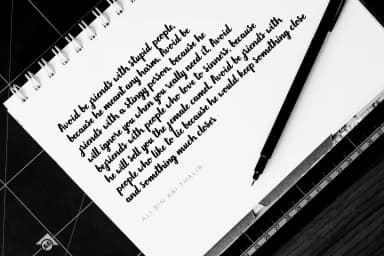 Avoid be friends with stupid people,
because he meant any harm. Avoid be
friends with a stingy person, because he
will ignore you when you really need it. Avoid
befriends with people who love to sinners, because
he will sell you the female camel. Avoid be friends with
people who like to lie because he would keep something close
and something much closer
ALI BIN ABI THALIB